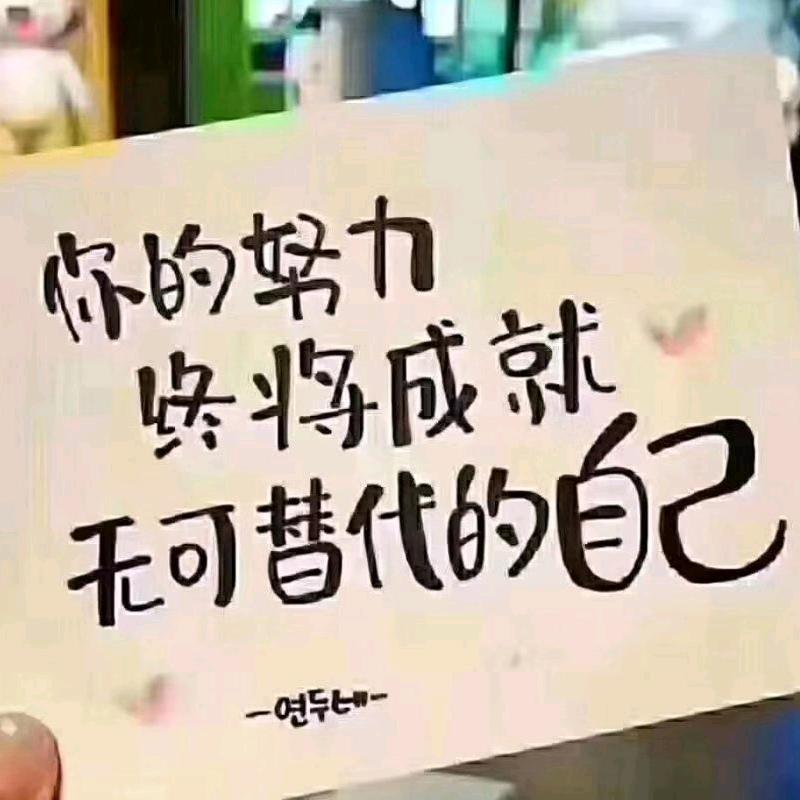 你的努力
终将成就
无可替代的自己
-연두네-